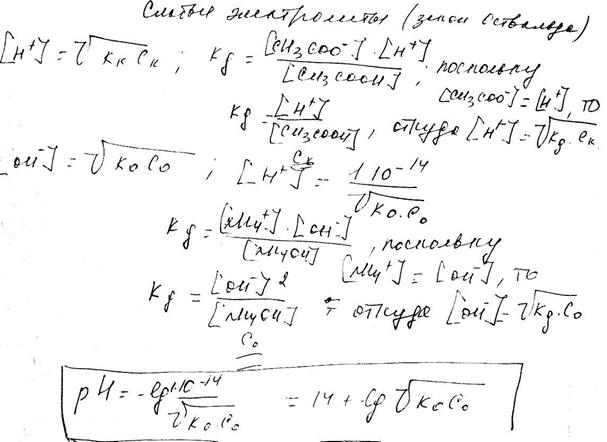 Слабые электролиты (закон Оствальда)
[H⁺] = √KкCк ; Kg = [CH₃COO⁻]·[H⁺] / [CH₃COOH] ; поскольку
[CH₃COO⁻] = [H⁺], то
Kg = [H⁺] / [CH₃COOH] , откуда [H⁺] = √Kg·Cк
Cк
[OH⁻] = √KoCo ; [H⁺] = 1 10⁻¹⁴ / √Ko·Co
Kg = [NH₄⁺]·[OH⁻] / [NH₄OH] , поскольку
[NH₄⁺] = [OH⁻], то
Kg = [OH⁻]² / [NH₄OH] откуда [OH⁻] = √Kg·Co
Co
pH = -lg 1·10⁻¹⁴ / √Ko·Co = 14 + lg √KoCo